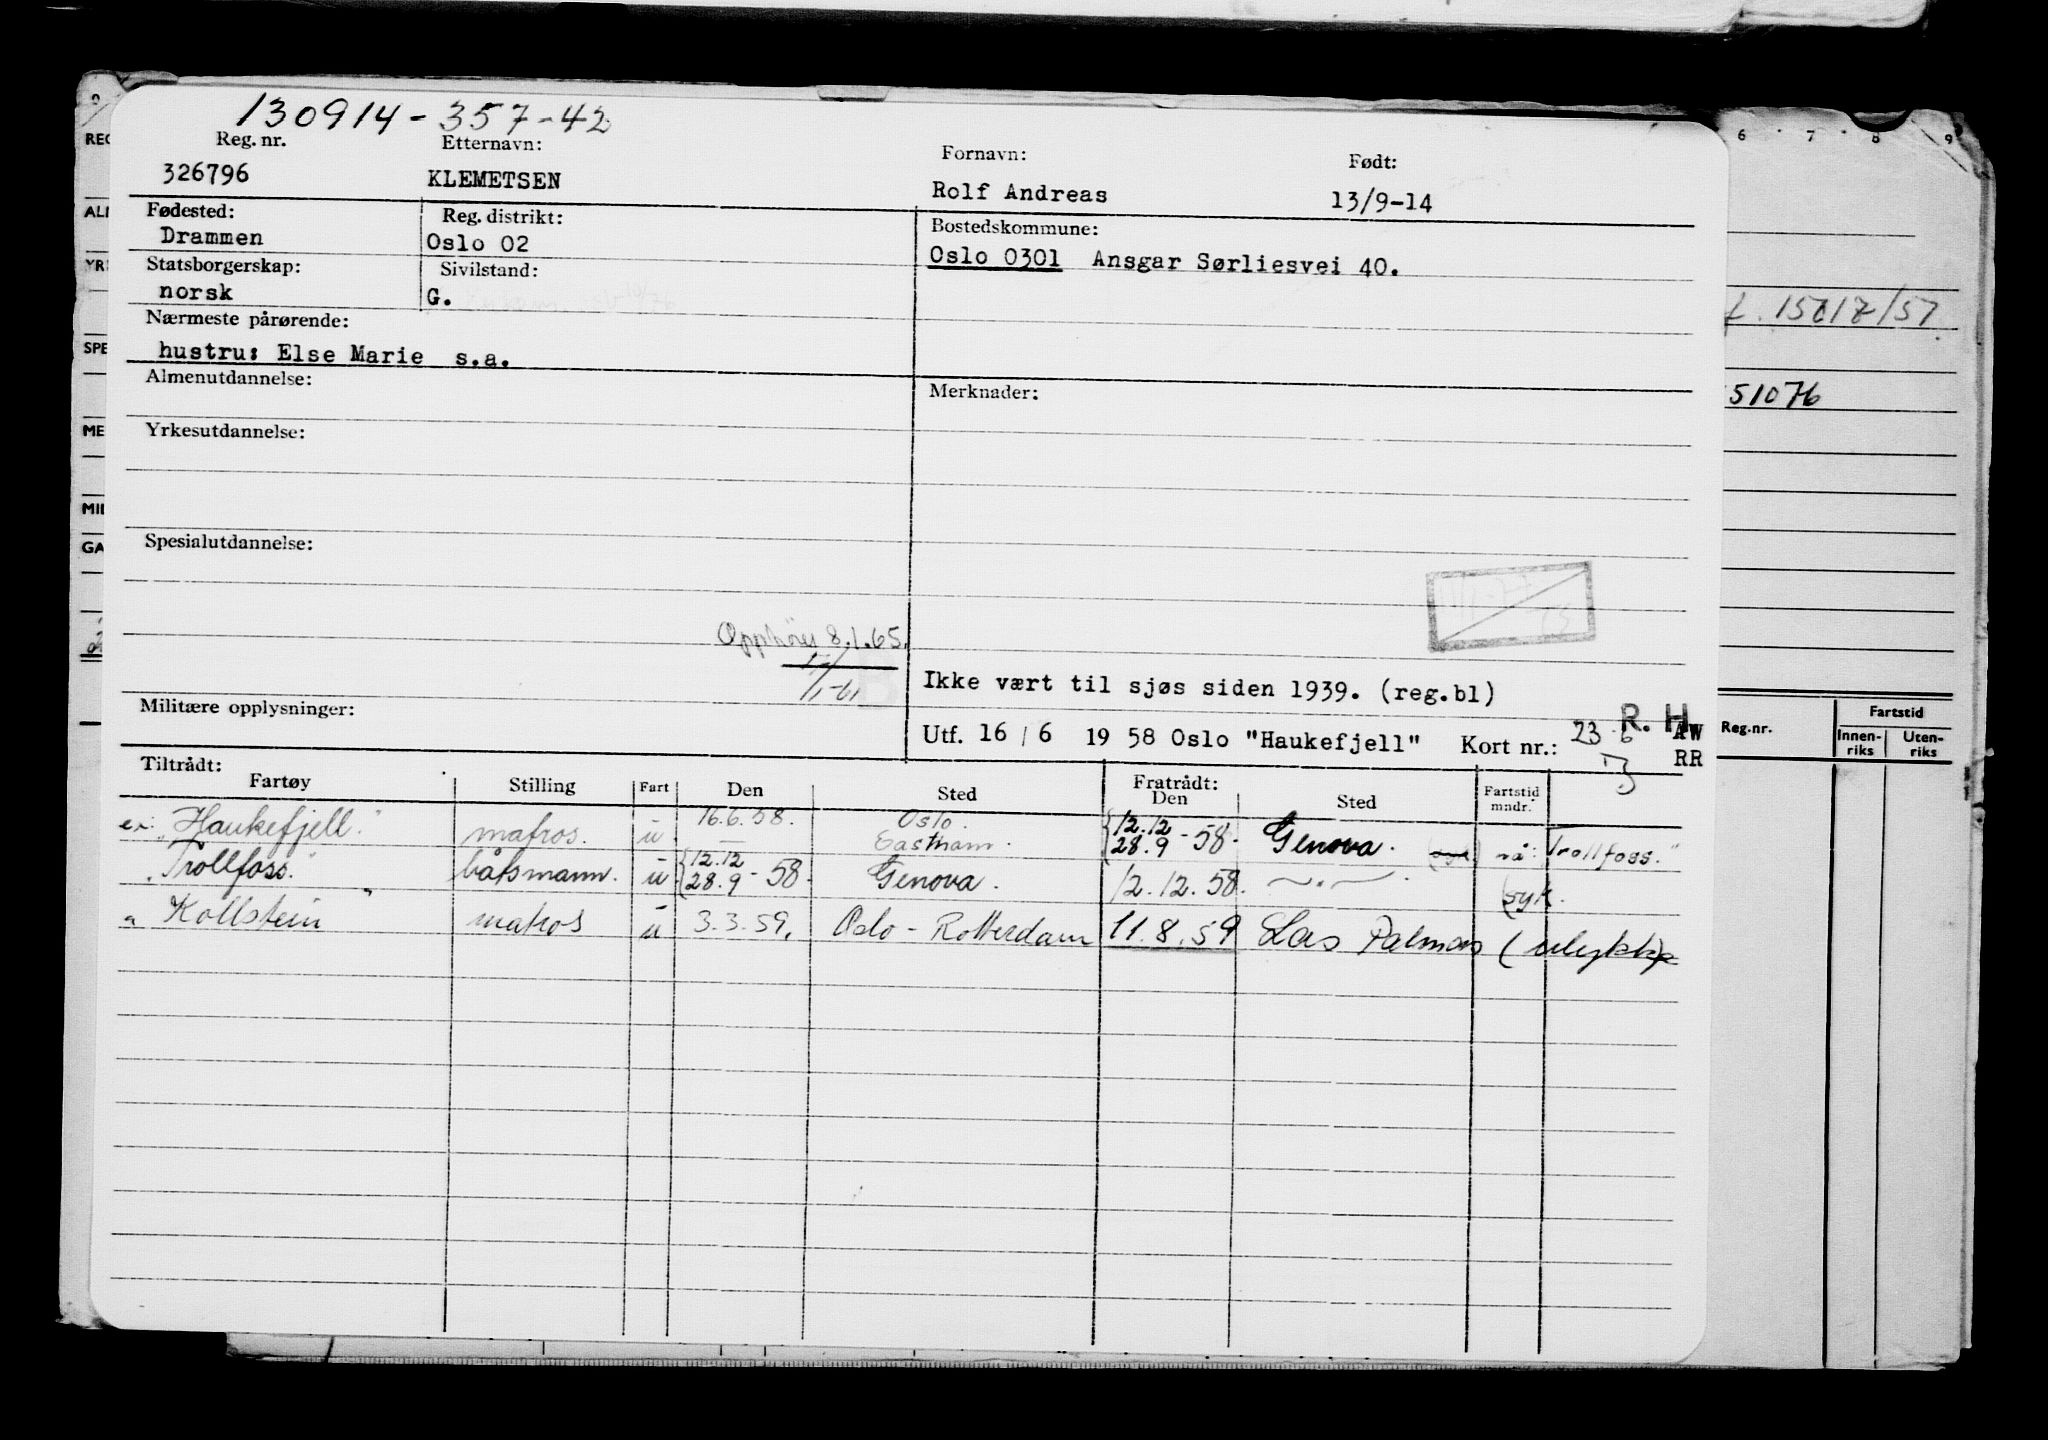 130914-357-42
Reg. nr. Etternavn: Fornavn: Født:
326796 KLEMETSEN Rolf Andreas 13/9-14
Fødested: Reg. distrikt: Bostedskommune:
Drammen Oslo 02 Oslo 0301 Ansgar Sørliesvei 40.
Statsborgerskap: Sivilstand:
norsk G.
Nærmeste pårørende:
hustru: Else Marie s.a.
Almenutdannelse: Merknader:
Yrkesutdannelse:
Spesialutdannelse:
Opphør 8.1.65.
Ikke vært til sjøs siden 1939. (reg.bl)
Militære opplysninger:
R. H
Utf. 16 / 6 19 58 Oslo "Haukefjell" Kort nr.: AW
RR
Tiltrådt: Fratrådt:
Fartøy Stilling Fart Den Sted Den Sted Fartstid mndr.
ex: "Haukefjell." matros. u 16.6.58. Oslo. Eastham. 12.12 28.9-58. Genova. nå: Trollfoss."
"Trollfoss." båtsmann. u 12.12 28.9-58. Genova. 12.12.58. (syk.
" Kollstein " matros u 3.3.59. Oslo - Rotterdam 11.8.59 Las Palmas (ulykke)
6 7 8 9
51076
REG
ALM
YR
SPE
ME
MIL
GA
Reg.nr. Fartstid
Innen-riks Uten-riks